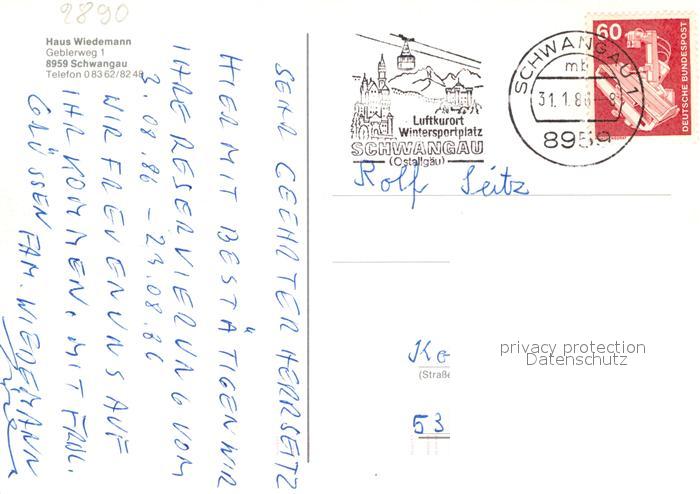 2890
Haus Wiedemann
Geblerweg 1
8959 Schwangau
Telefon 08362/8248
SEHR GEEHRTER HERR SEITZ
HIERMIT BESTÄTIGEN WIR
IHRE RESERVIERUNG VOM
3.08.86 – 23.08.86
WIR FREUEN UNS AUF
IHR KOMMEN. MIT FRDL.
GRÜSSEN FAM. WIEDEMANN
Luftkurort
Wintersportplatz
SCHWANGAU
(Ostallgäu)
SCHWANGAU 1
mb
31.1.86-8
8959
60
DEUTSCHE BUNDESPOST
Rolf Seitz
Ko
(Straße
53
privacy protection
Datenschutz